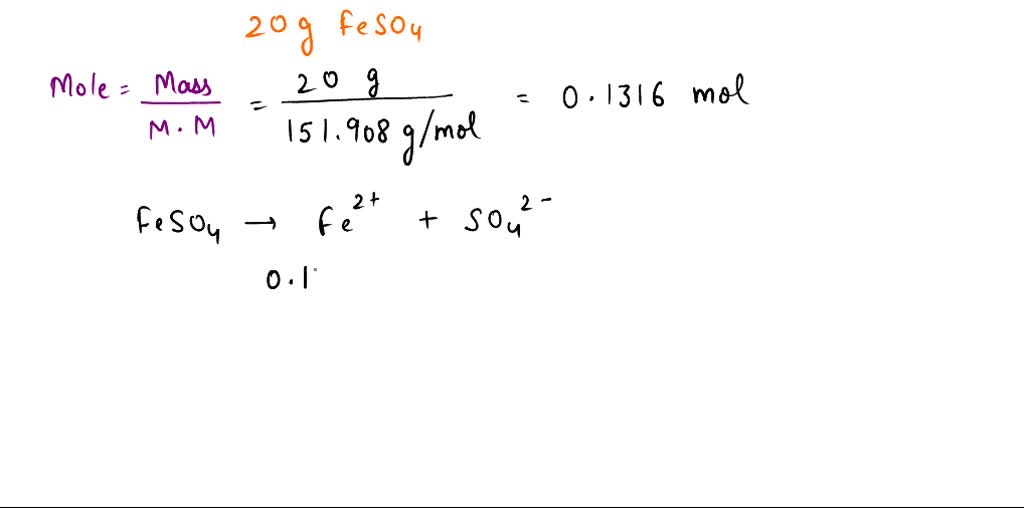 20 g FeSO4
Mole = Mass / M.M = 20 g / 151.908 g/mol = 0.1316 mol
FeSO4 → Fe2+ + SO4 2-
0.1